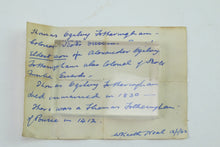 Thomas Ogilvy Fotheringham -
Colonel Scots
Eldest son of Alexander Ogilvy
Fotheringham also Colonel of Scots
Guards.
Thomas Ogilvy Fotheringham
died unmarried in 1830 -
There was a Thomas Fotheringham
of Powrie in 1412.
W Keith Neal